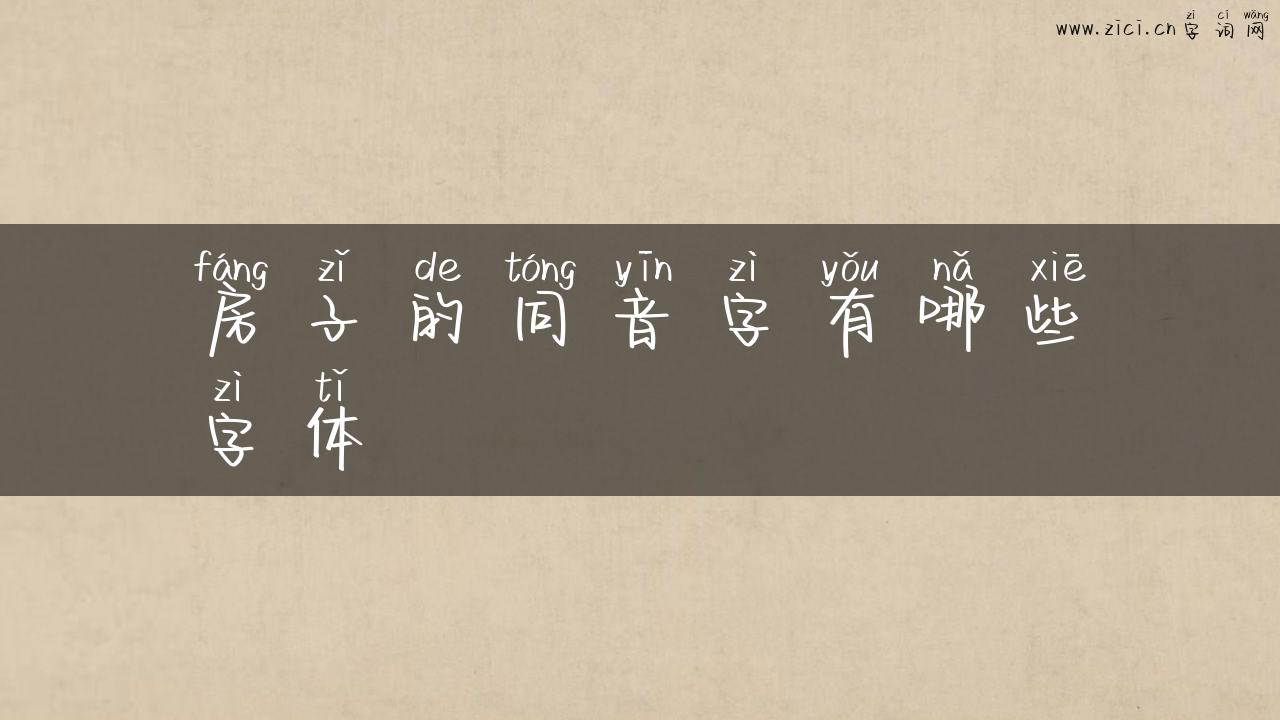 zì cí wǎng
www.zici.cn 字词网
fáng zǐ de tóng yīn zì yǒu nǎ xiē
房子的同音字有哪些
zì tǐ
字体